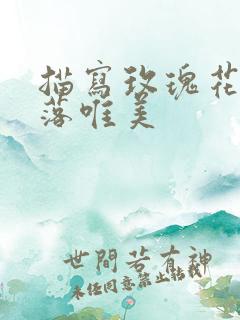 描寫玫瑰花
落唯美
世間若有神
未经同意禁止转载